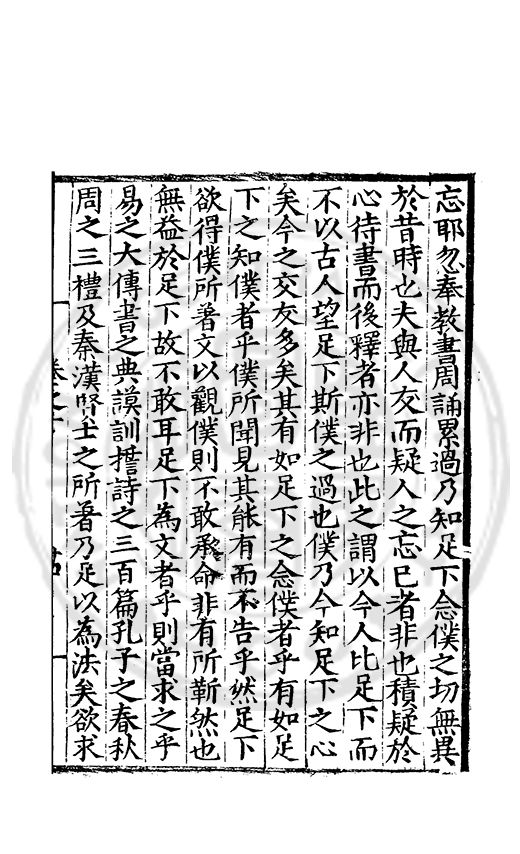 忘耶忽奉教書周誦累過乃知足下念僕之切無異
於昔時也夫與人交而疑人之忘己者非也積疑於
心待書而後釋者亦非也此之謂以今人比足下而
不以古人望足下斯僕之過也僕乃今知足下之心
矣今之交友多矣其有如足下之念僕者乎有如足
下之知僕者乎僕所聞見其能有而不告乎然足下
欲得僕所著文以觀僕則不敢承命非有所靳然也
無益於足下故不敢耳足下為文者乎則當求之乎
易之大傳書之典謨訓誓詩之三百篇孔子之春秋
周之三禮及秦漢賢士之所著乃足以為法矣欲求
卷之